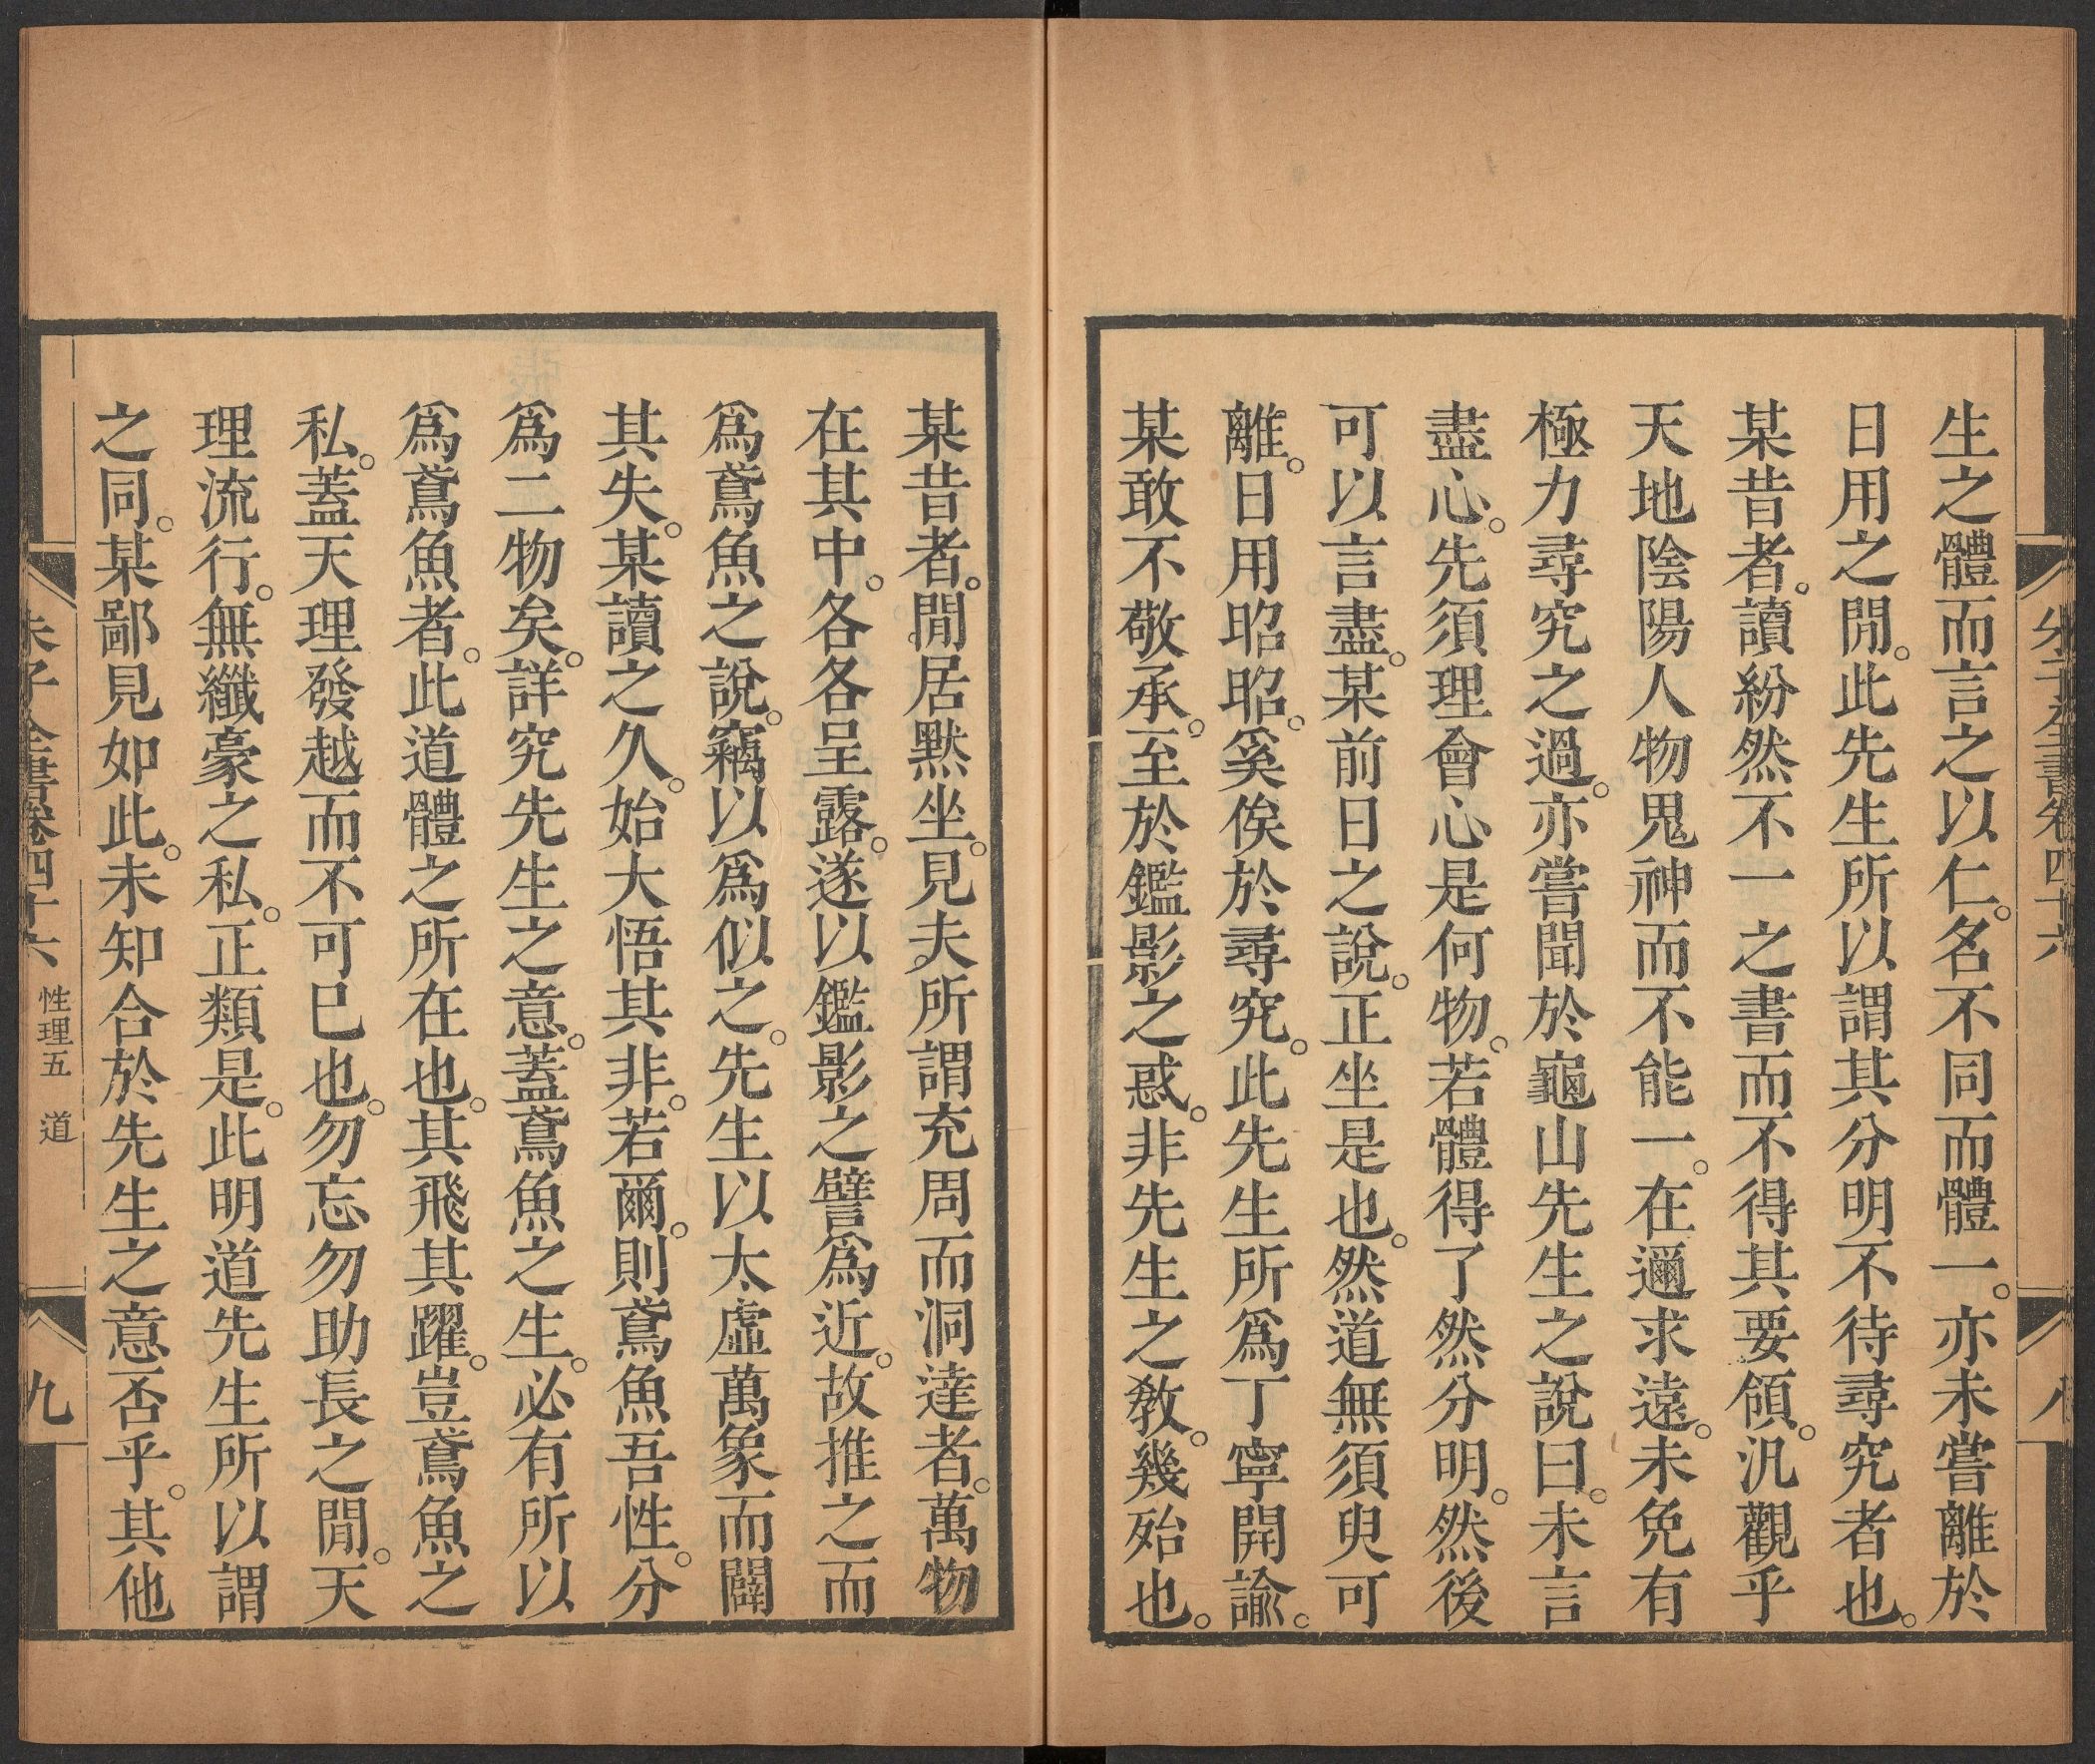 生之體而言之以仁。名不同而體一。亦未嘗離於
日用之閒。此先生所以謂其分明不待尋究者也。
某昔者。讀紛然不一之書而不得其要領。汎觀乎
天地陰陽人物鬼神而不能一。在邇求遠。未免有
極力尋究之過。亦嘗聞於龜山先生之說曰。未言
盡心。先須理會心是何物。若體得了然分明。然後
可以言盡。某前日之說。正坐是也。然道無須臾可
離。日用昭昭。奚俟於尋究。此先生所爲丁寧開諭。
某敢不敬承。至於鑑影之惑。非先生之教。幾殆也。
某昔者。閒居默坐。見夫所謂充周而洞達者。萬物
在其中。各各呈露。遂以鑑影之譬爲近。故推之而
爲鳶魚之說。竊以爲似之。先生以太虛萬象而闢
其失。某讀之久。始大悟其非。若爾。則鳶魚吾性。分
爲二物矣。詳究先生之意。蓋鳶魚之生。必有所以
爲鳶魚者。此道體之所在也。其飛其躍。豈鳶魚之
私。蓋天理發越而不可已也。勿忘勿助長之閒。天
理流行。無纖豪之私。正類是。此明道先生所以謂
之同。某鄙見如此。未知合於先生之意否乎。其他
朱子全書卷四十六 性理五 道
九